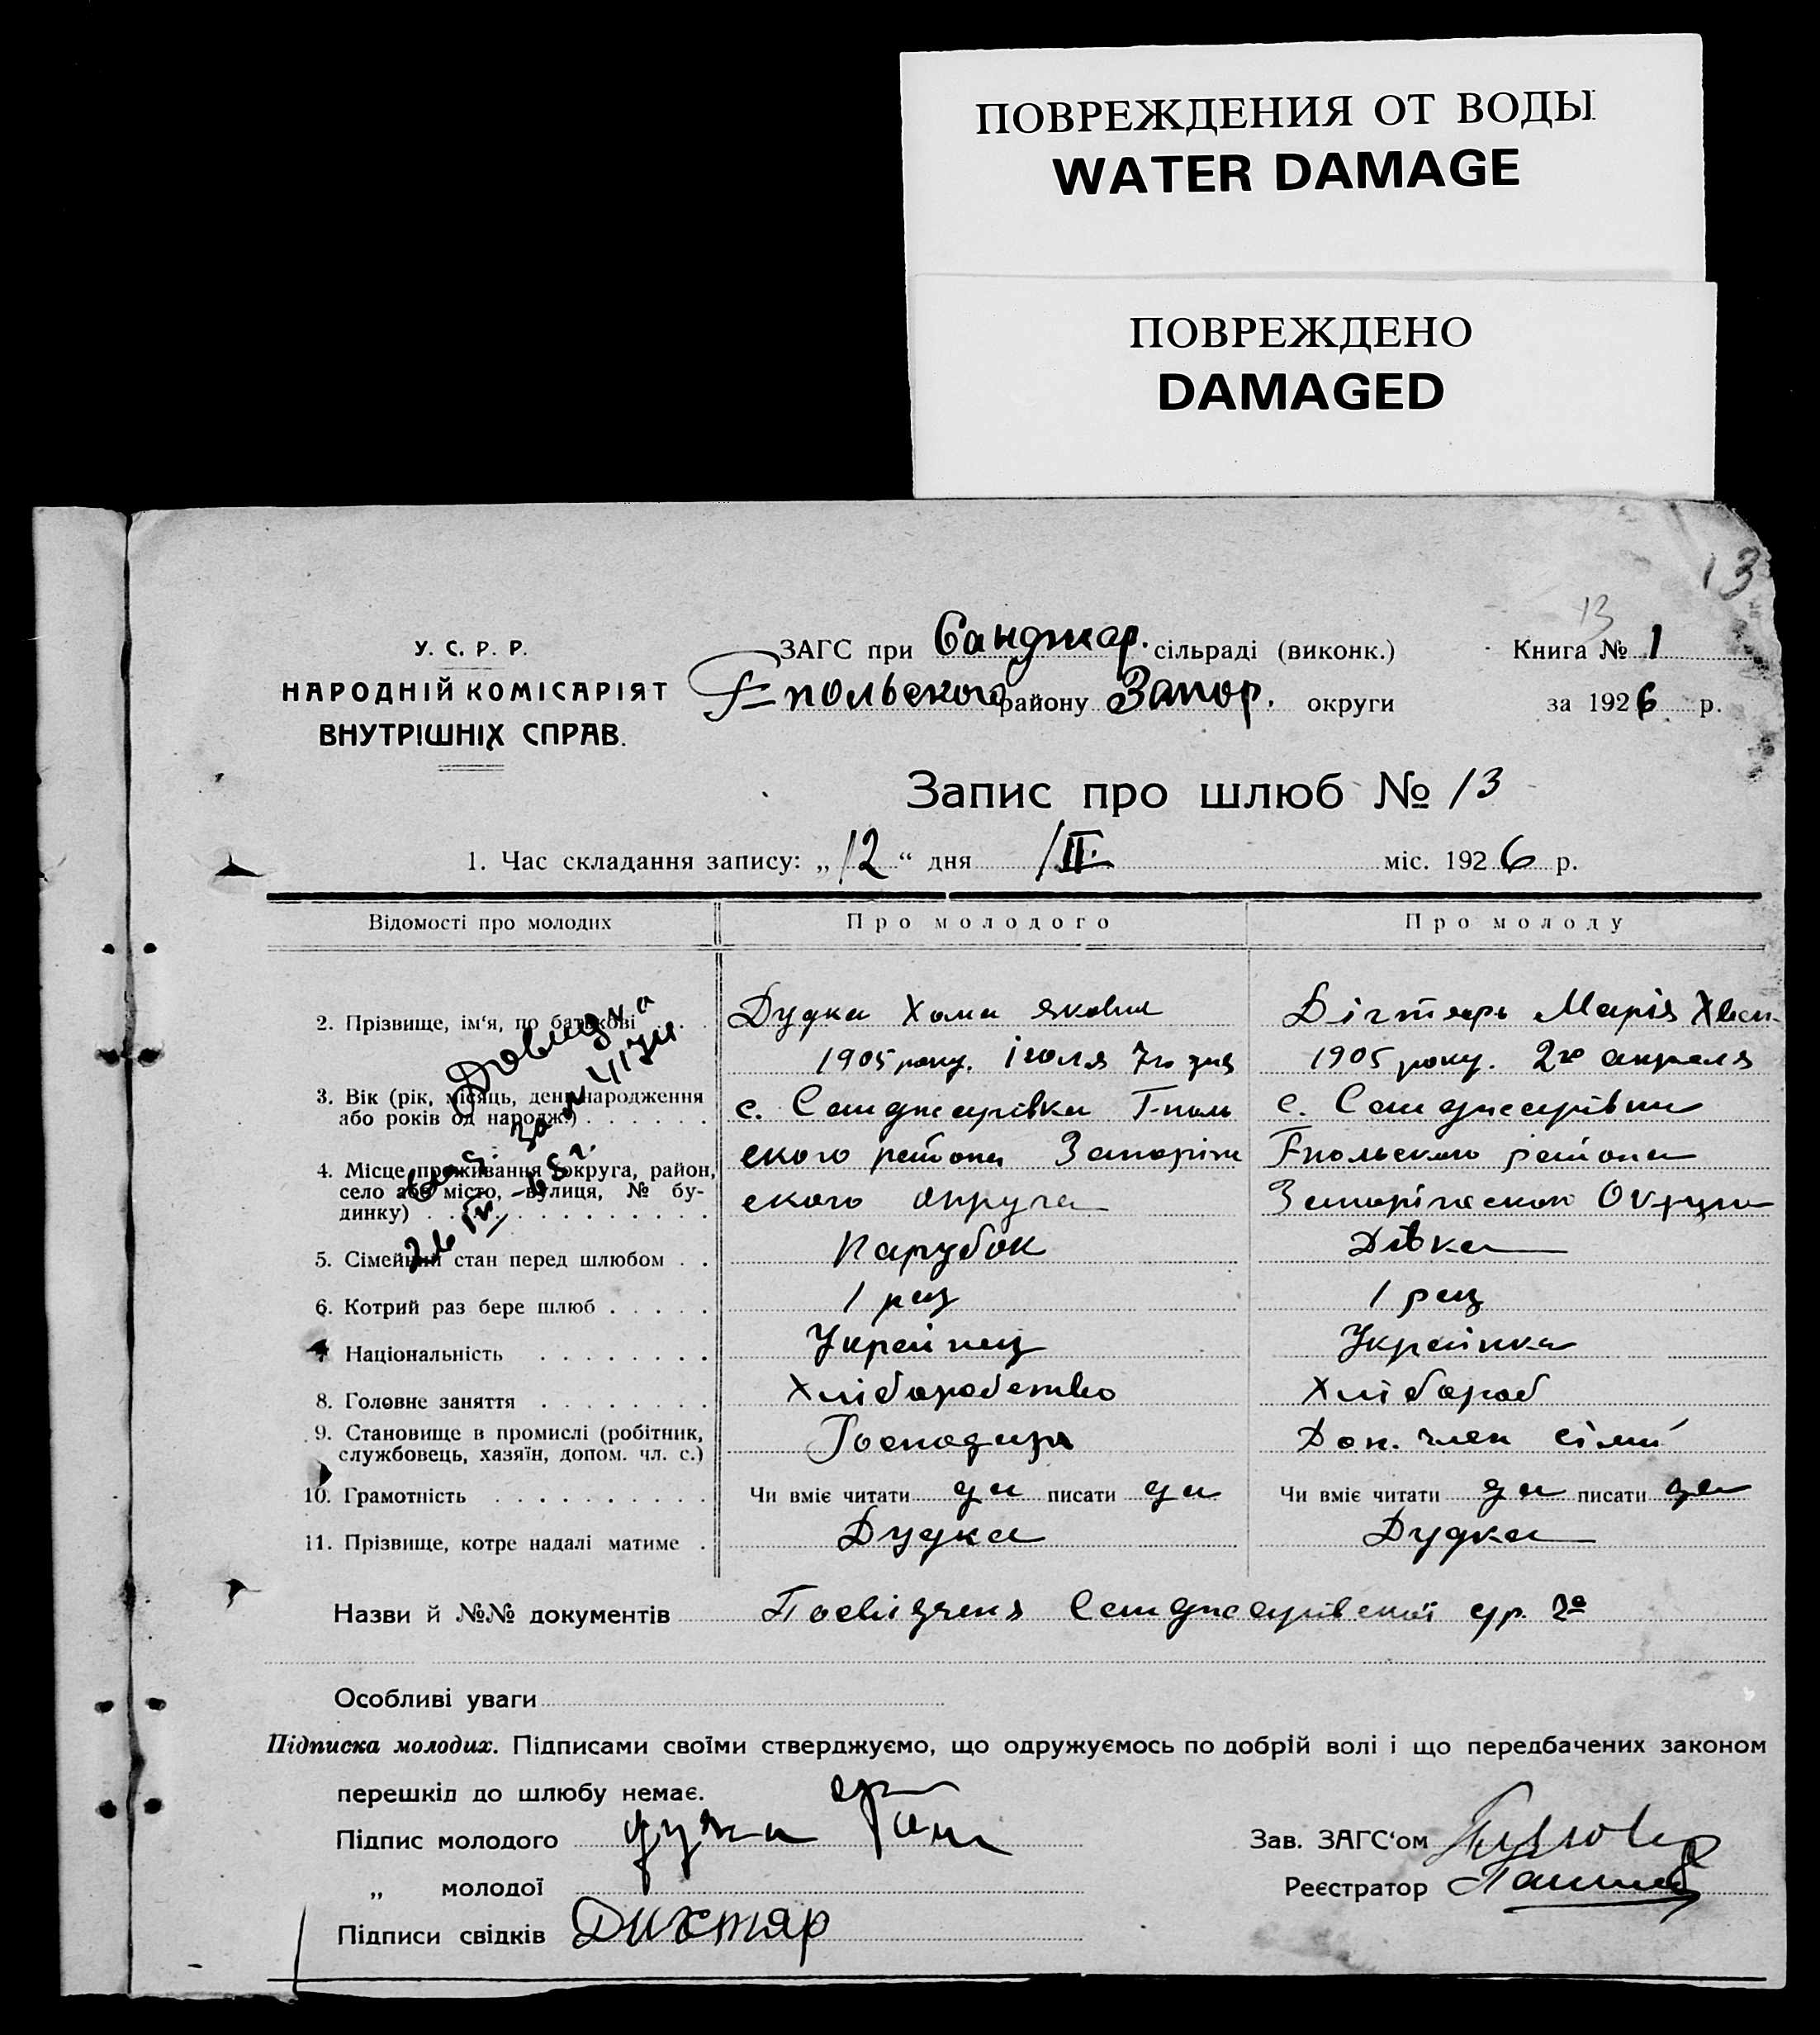 ПОВРЕЖДЕНИЯ ОТ ВОДЫ
WATER DAMAGE
ПОВРЕЖДЕНО
DAMAGED
13
13
У. С. Р. Р.
НАРОДНІЙ КОМІСАРІЯТ
ВНУТРІШНІХ СПРАВ.
ЗАГС при Санджар. сільраді (виконк.)
Т-польского району Запор. округи
Книга № 1
за 1926 р.
Запис про шлюб № 13
1. Час складання запису: „12“ дня /II. міс. 1926 р.
Відомості про молодих Про молодого Про молоду
2. Прізвище, ім‘я, по батькові . . Дудка Хома Якович Дігтярь Марія
1905 року. Июля 7го дня 1905 року. 2го апреля
3. Вік (рік, місяць, день народження
або років од народж.) . . . . . . с. Санджарівка Т-поль с. Санджарівки
4. Місце проживання (округа, район, ского района Запоріж Т-польского района
село або місто, вулиця, № бу-
динку) . . . . . . . . . . . . . ского округа Запоріжского Округи
Довидка
за № 4174
26 IV - 65 г.
5. Сімейний стан перед шлюбом . . Парубок Дівка
6. Котрий раз бере шлюб . . . . . 1 раз 1 раз
7 Національність . . . . . . . . Українец Українка
8. Головне заняття . . . . . . . . Хліборобство Хлібороб
9. Становище в промислі (робітник,
службовець, хазяїн, допом. чл. с.) Господарь Доп. член сімї
10. Грамотність . . . . . . . . . . Чи вміє читати да писати да Чи вміє читати да писати да
11. Прізвище, котре надалі матиме . Дудка Дудка
Назви й №№ документів Посвідченя Санджарівскої
Особливі уваги
Підписка молодих. Підписами своїми стверджуємо, що одружуємось по добрій волі і що передбачених законом
перешкід до шлюбу немає.
Підпис молодого дудка Зав. ЗАГС‘ом
„ молодої Реєстратор
Підписи свідків Дихтяр